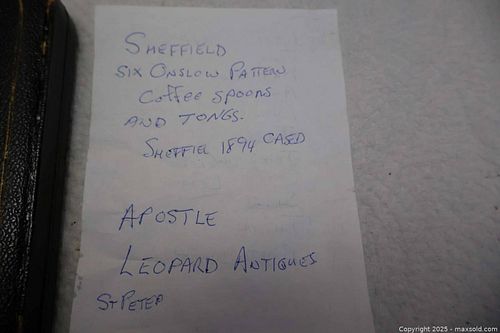 SHEFFIELD
SIX ONSLOW PATTERN
COFFEE SPOONS
AND TONGS.
SHEFFIEL 1894 CASED
APOSTLE
LEOPARD ANTIQUES
ST PETER
Copyright © 2025 - maxsold.com